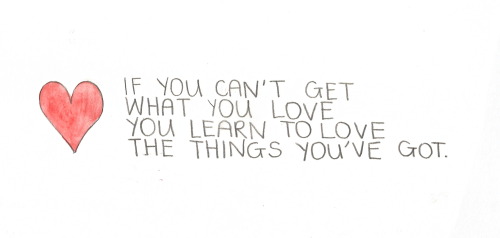 IF YOU CAN'T GET
WHAT YOU LOVE
YOU LEARN TO LOVE
THE THINGS YOU'VE GOT.